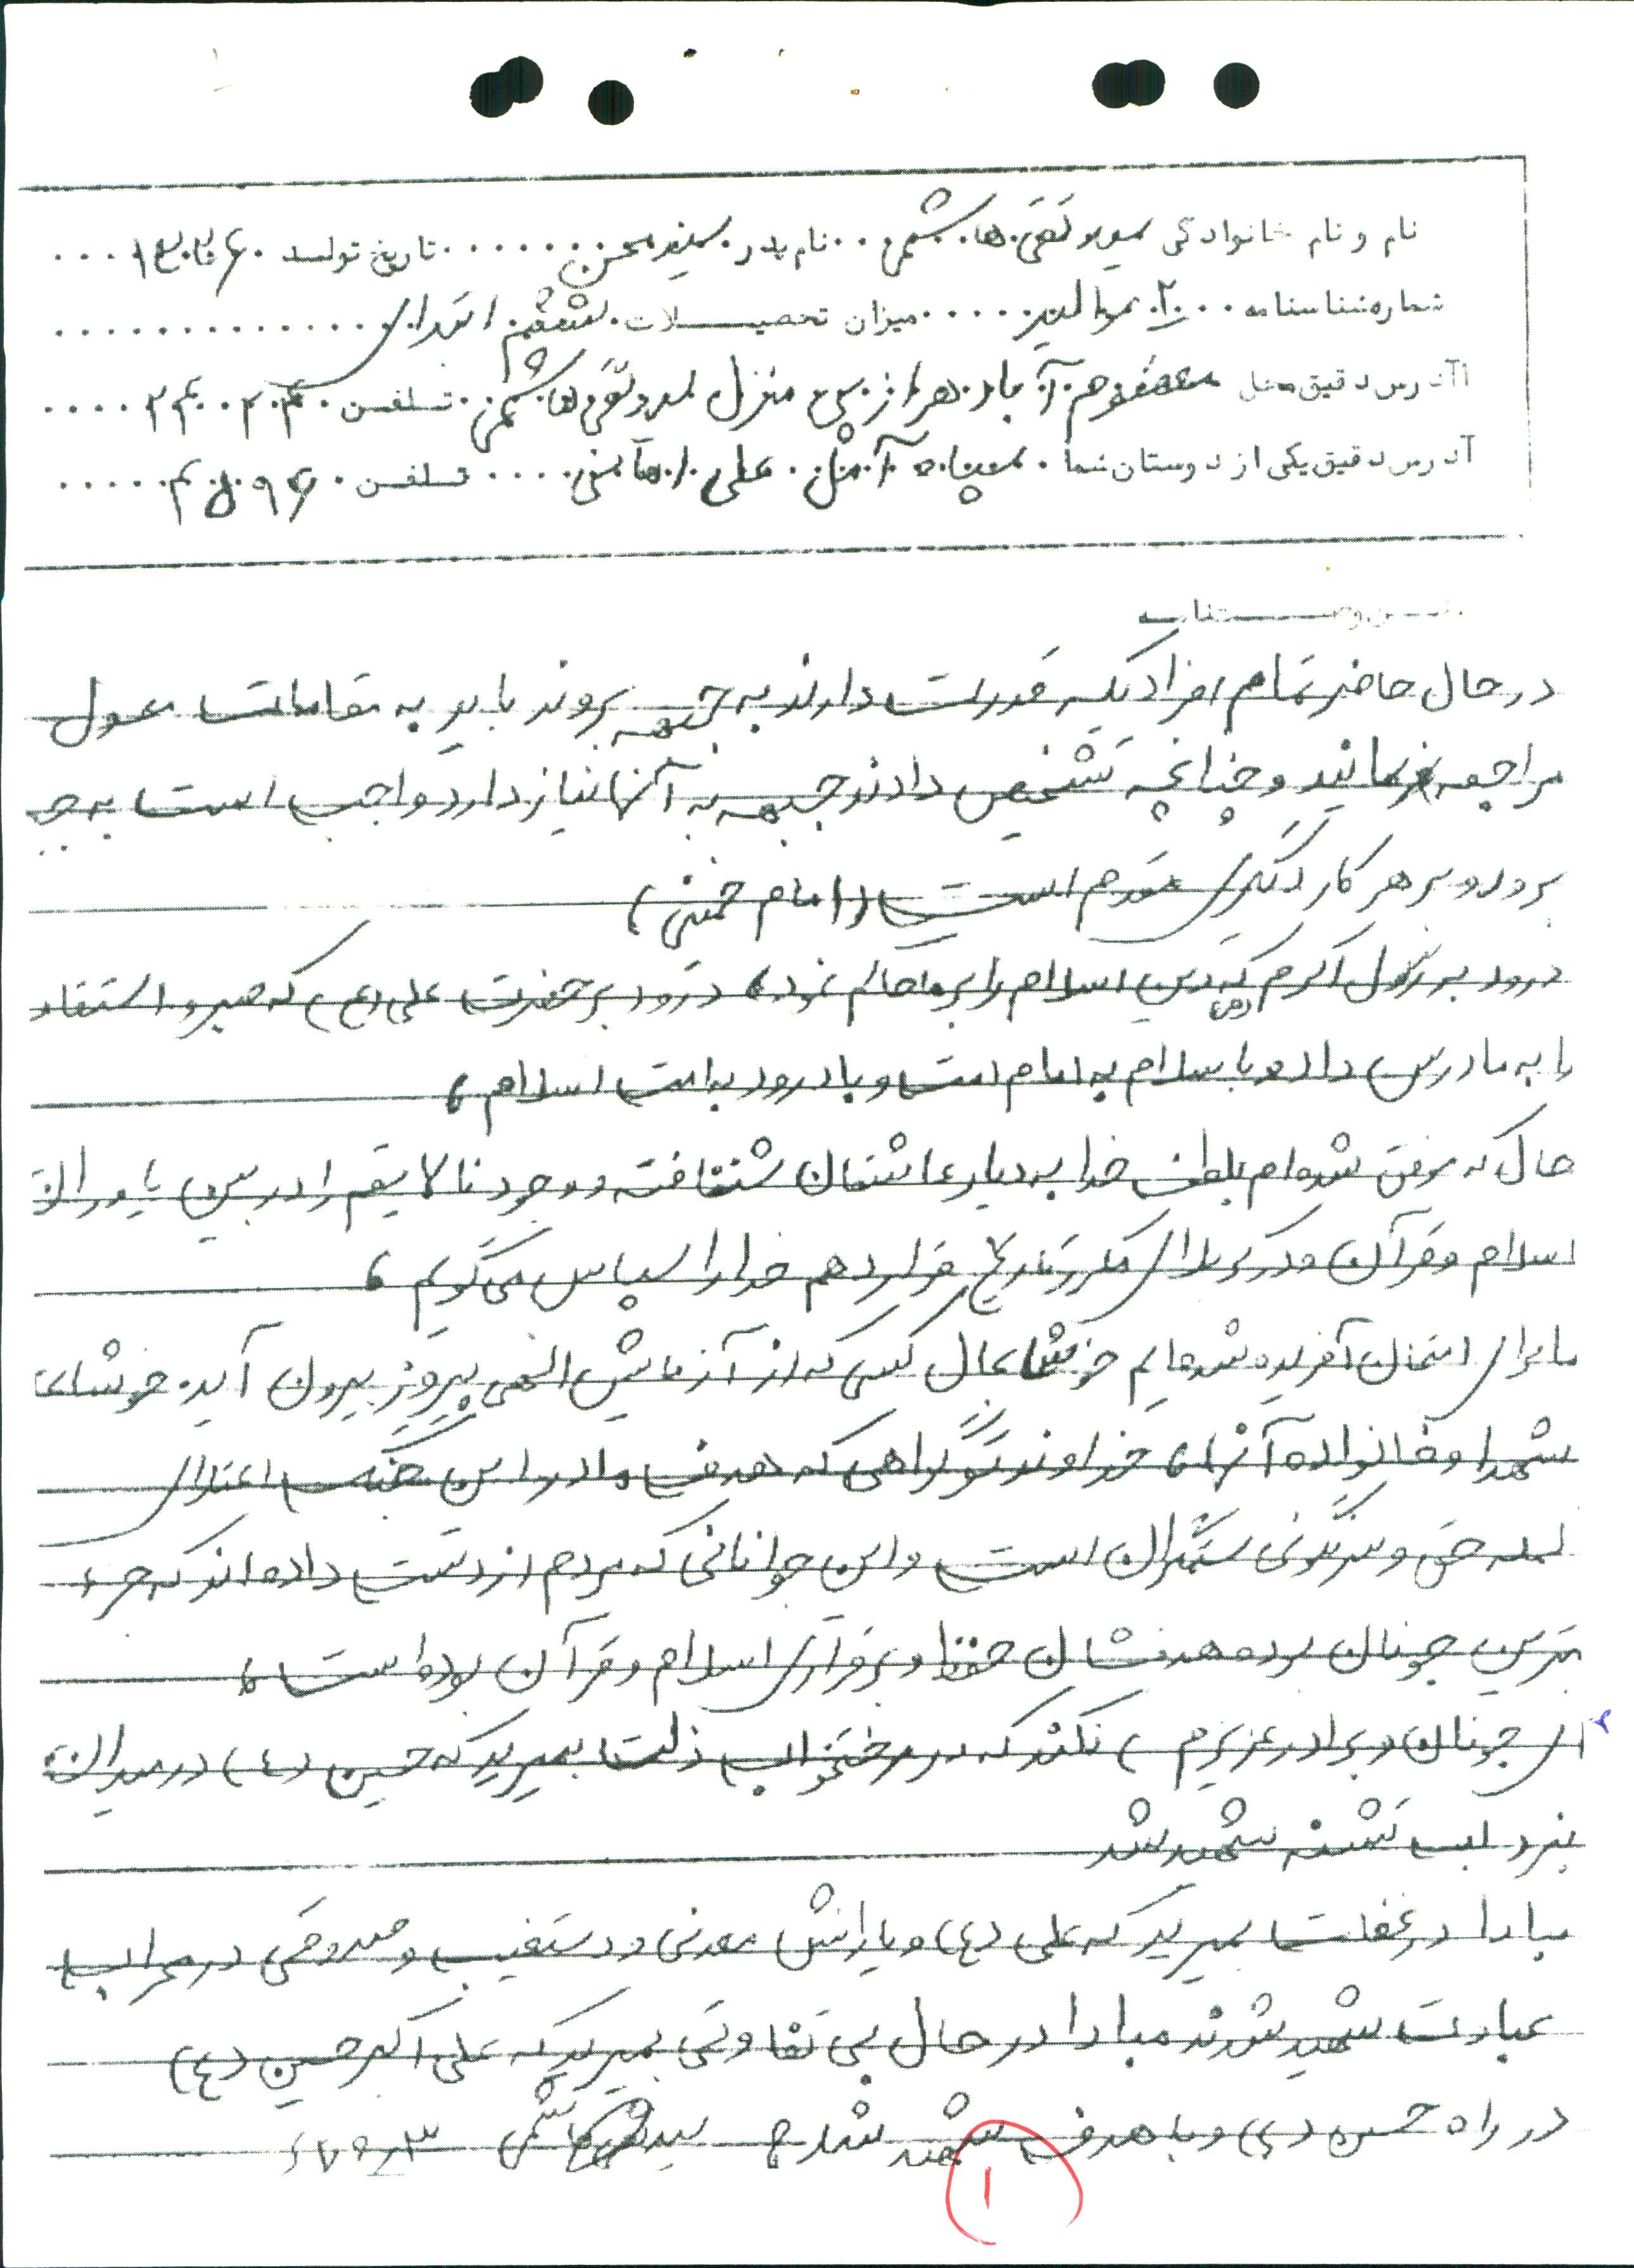 نام و نام خانوادگی سید تقی هاشمی نام پدر سید محسن تاریخ تولد
شماره شناسنامه ۲۰ میزان تحصیلات ششم ابتدائی
آدرس دقیق محل معصوم آباد هرازپی منزل سید تقی هاشمی تلفن
آدرس دقیق یکی از دوستان شما سپاه آمل علی تلفن
در حال حاضر تمام افرادیکه قدرت دارند به جبهه بروند باید به مقامات مسول
مراجعه نمائید و چنانچه تشخیص دادند جبهه به آنها نیاز دارد واجب است به جبهه
برود و بر هر کار دیگری مقدم است (امام خمینی)
درود بر رسول اکرم (ص) که دین اسلام را بر ما حاکم نمود، درود بر حضرت علی (ع) که صبر و استقامت
را به ما درس داد و با سلام به امام امت و با درود به امت اسلام،
حال که موفق شده‌ام بلطف خدا به دیار عاشقان شتافته و وجود نالایقم را در بین یاوران
اسلام و قرآن و در کربلای مکرر تاریخ قرار دهم خدا را سپاس می‌گویم،
ما برای امتحان آفریده شده‌ایم خوشا بحال کسی که از آزمایش الهی پیروز بیرون آید. خوشا بحال
شهدا و خانواده آنها، خداوند تو گواهی که هدف ما در این جنگ اعتلای
کلمه حق و سرنگونی ستمگران است و این جوانانی که مردم از دست داده اند که جزء
بهترین جونان بوده هدفشان حفظ و برقراری اسلام و قرآن بوده است،
ای جونان و برادر عزیزم، نکند که در رختخواب ذلت بمیرید که حسین (ع) در میدان
نبرد لب تشنه شهید شد
مبادا در غفلت بمیرید که علی (ع) و یارانش مدنی و دستغیب و صدوقی در محراب
عبادت شهید شدند مبادا در حال بی تفاوتی بمیرید که علی اکبر حسین (ع)
در راه حسین (ع) و با هدف شهید شد سید تقی هاشمی
۱